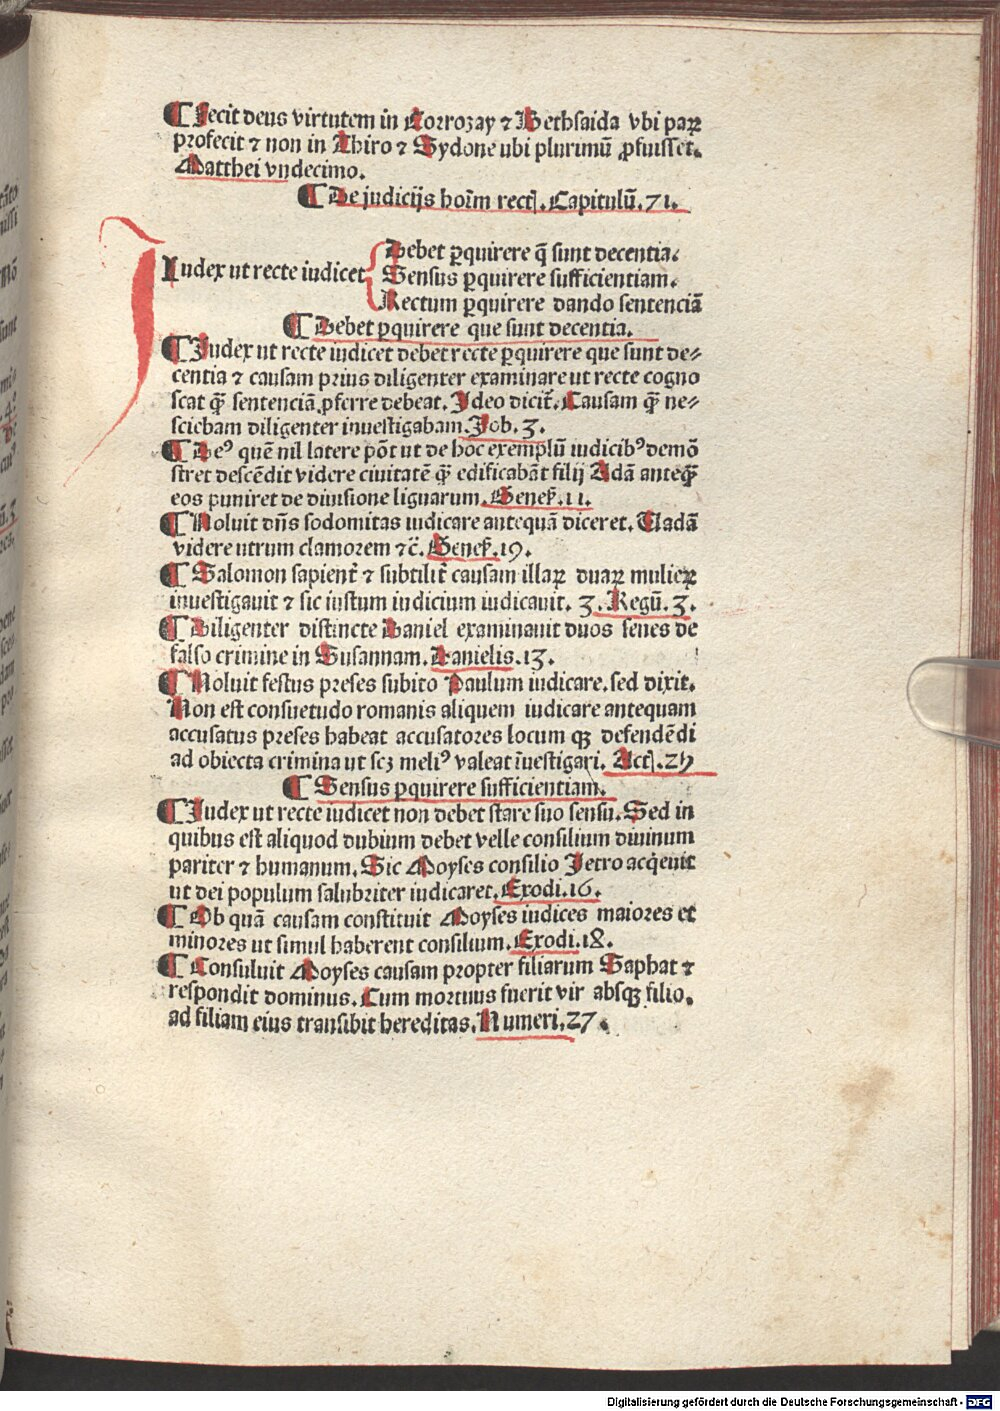 ¶ Fecit deus virtutem in Corrozay ⁊ Bethsaida vbi paꝝ
profecit ⁊ non in Thiro ⁊ Sydone ubi plurimū ꝓfuisset.
Matthei vndecimo.
¶ De judicijs hoīm rectꝭ. Capitulū. 71.
Iudex ut recte iudicet
Debet ꝑquirere q̄ sunt decentia.
Sensus ꝑquirere sufficientiam.
Rectum ꝑquirere dando sentenciā
¶ Debet ꝑquirere que sunt decentia.
¶ Iudex ut recte iudicet debet recte ꝑquirere que sunt de⸗
centia ⁊ causam prius diligenter examinare ut recte cogno
scat q̄ꝫ sentenciā ꝓferre debeat. Ideo dicit̄. Causam q̄ꝫ ne⸗
sciebam diligenter inuestigabam. Iob. 3.
¶ Deꝰ quē nil latere pōt ut de hoc exemplū iudicibꝰ demō
stret descēdit videre ciuitatē q̄ꝫ edificabāt filij Adā anteq̄ꝫ
eos puniret de diuisione liguarum. Genes̄. 11.
¶ Noluit dn̄s sodomitas iudicare antequā diceret. Uadā
videre utrum clamorem ⁊c̄. Genes̄. 19.
¶ Salomon sapient̄ ⁊ subtilit̄ causam illaꝝ duaꝝ mulieꝝ
inuestigauit ⁊ sic iustum iudicium iudicauit. 3. Regū. 3.
¶ Diligenter distincte Daniel examinauit duos senes de
falso crimine in Susannam. Danielis. 13.
¶ Noluit festus preses subito Paulum iudicare. sed dixit.
Non est consuetudo romanis aliquem iudicare antequam
accusatus preses habeat accusatores locum qꝫ defendēdi
ad obiecta crimina ut scꝫ meliꝰ valeat īuestigari. Actꝭ. 25
¶ Sensus ꝑquirere sufficientiam.
¶ Iudex ut recte iudicet non debet stare suo sensu. Sed in
quibus est aliquod dubium debet velle consilium diuinum
pariter ⁊ humanum. Sic Moyses consilio Jetro acq̇euit
ut dei populum salubriter iudicaret. Exodi. 16.
¶ Ob quā causam constituit Moyses iudices maiores et
minores ut simul haberent consilium. Exodi. 18.
¶ Consuluit Moyses causam propter filiarum Saphat ⁊
respondit dominus. Cum mortuus fuerit vir absqꝫ filio.
ad filiam eius transibit hereditas. Numeri. 27.
Digitalisierung gefördert durch die Deutsche Forschungsgemeinschaft - DFG